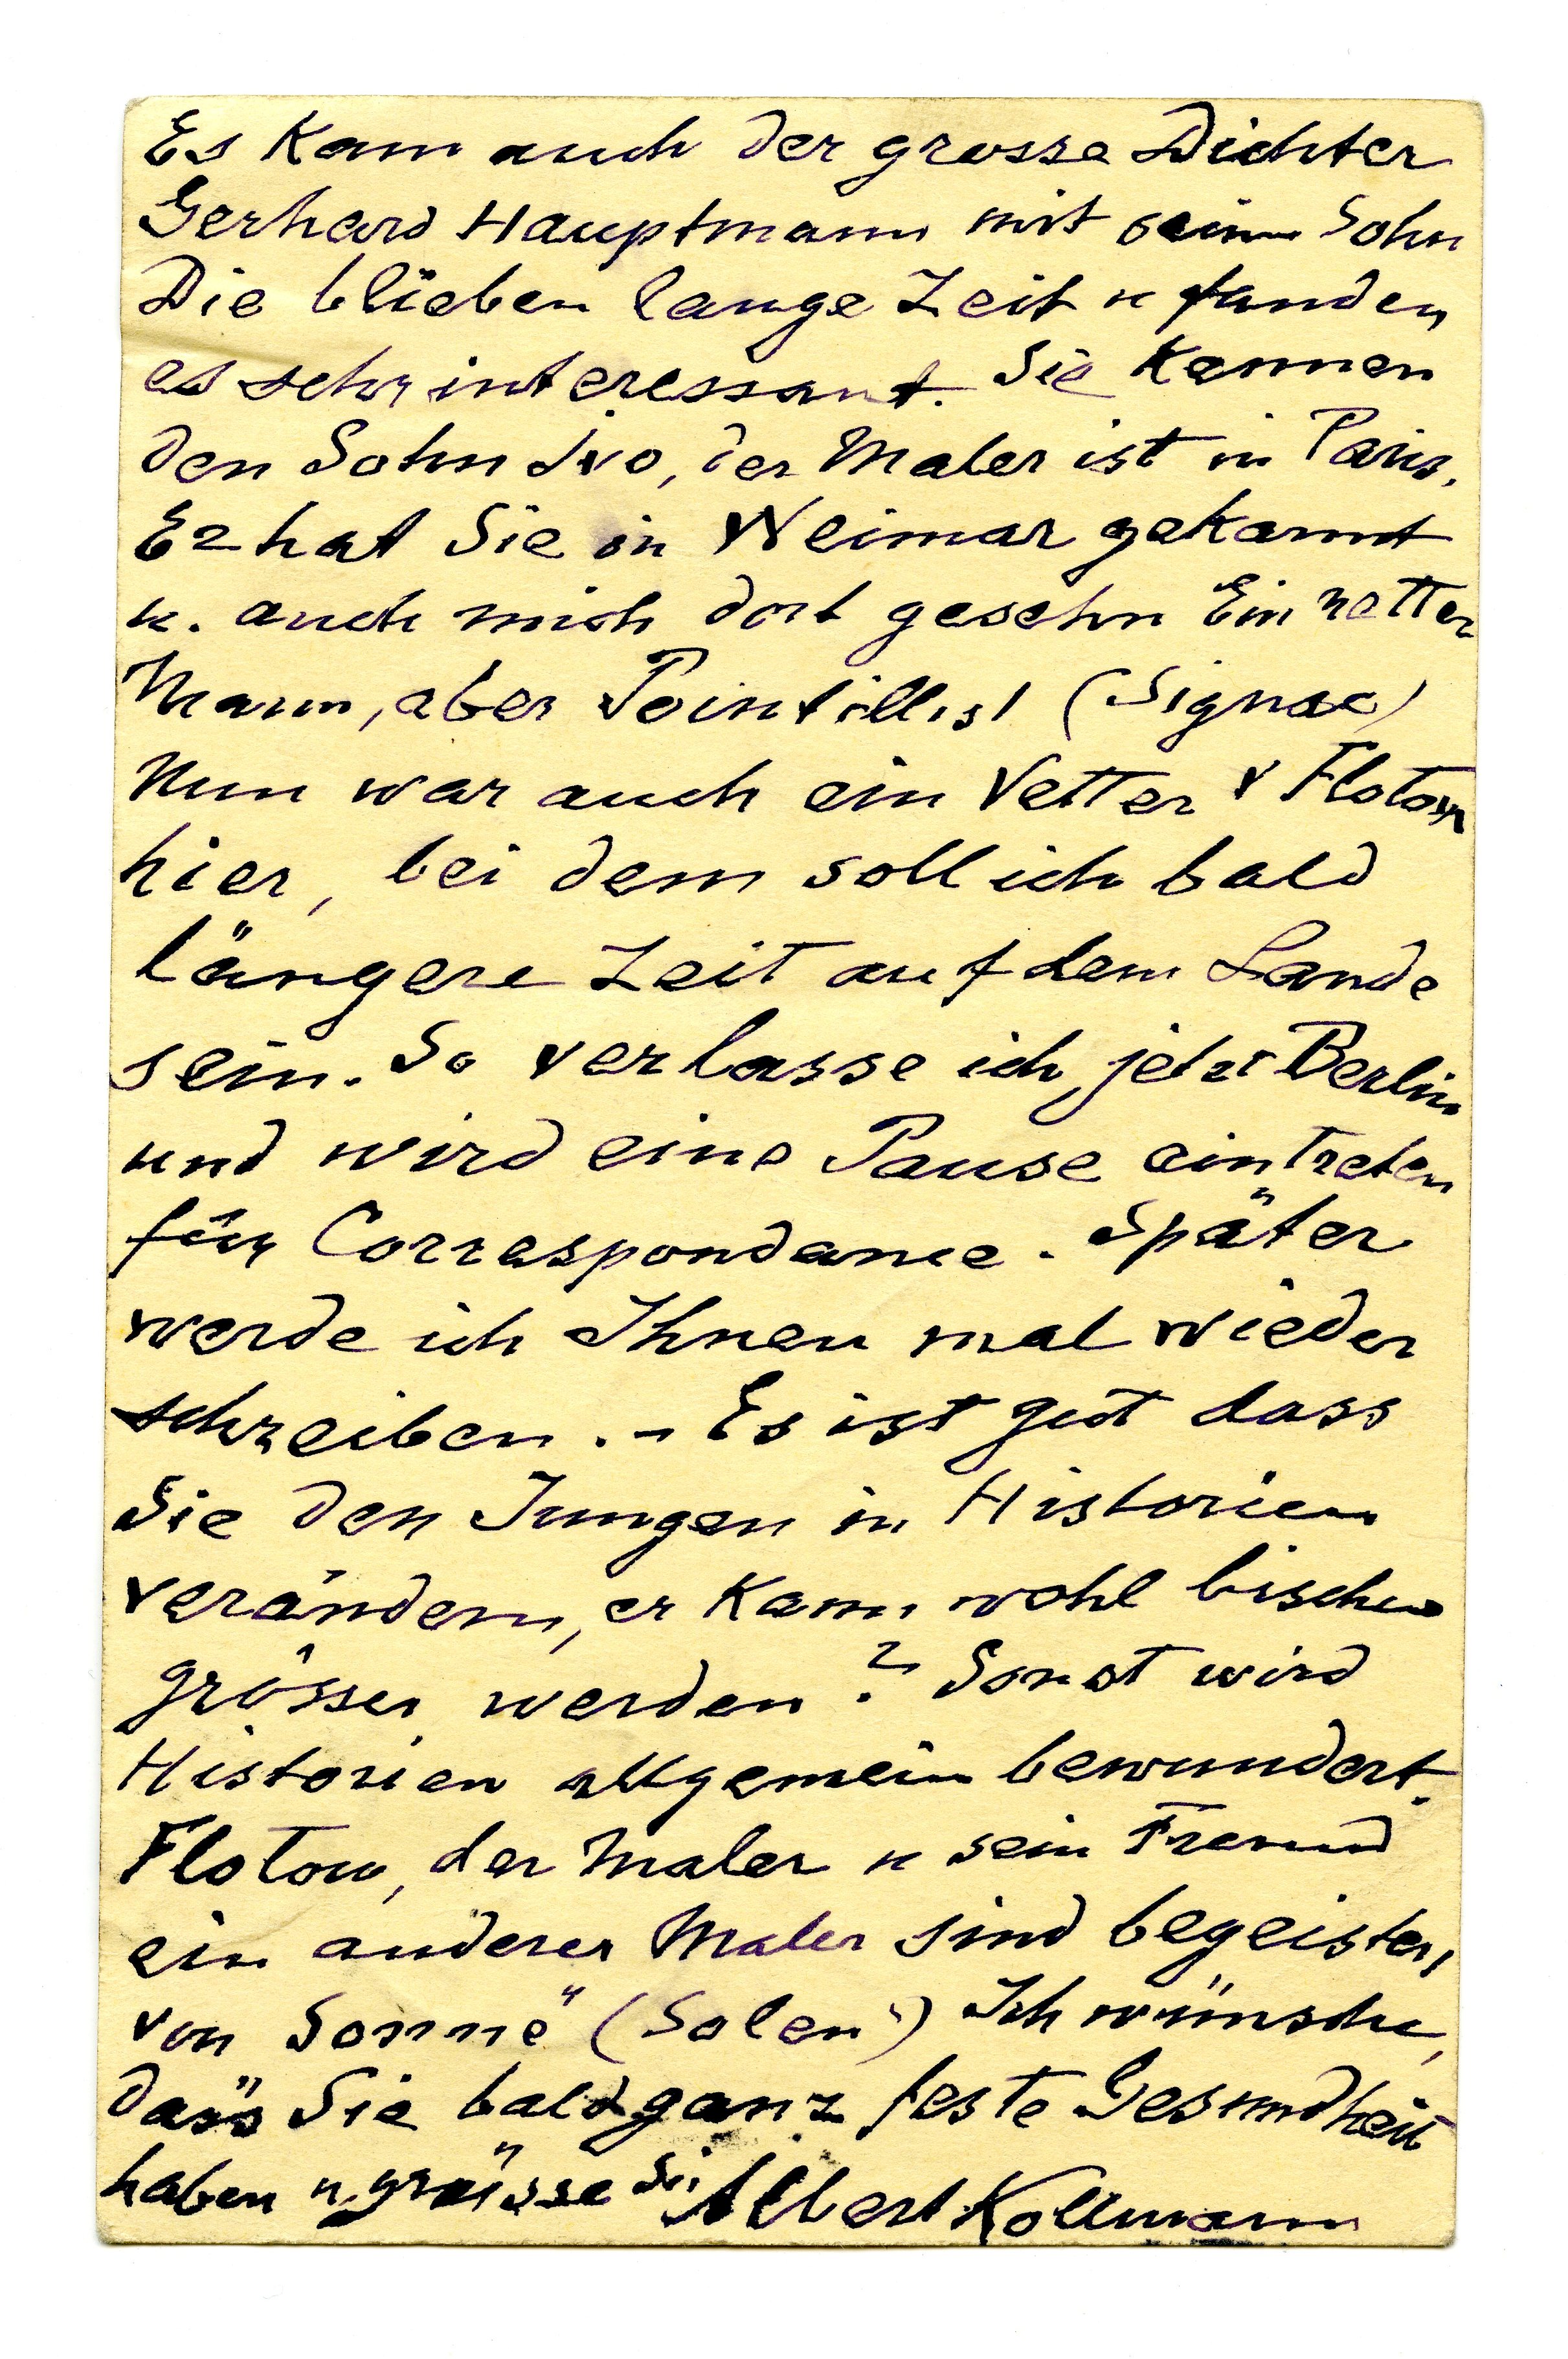 Es kam auch der grosse Dichter
Gerhard Hauptmann mit sein Sohn
Die blieben lange Zeit u fanden
es sehr interessant. Sie kennen
den Sohn Ivo, der Maler ist in Paris.
Er hat Sie in Weimar gekannt
u. auch mich dort gesehn Ein netter
Mann, aber Pointillist (Signac)
Nun war auch ein Vetter v Flotow
hier, bei dem soll ich bald
längere Zeit auf dem Lande
sein. So verlasse ich jetzt Berlin
und wird eine Pause eintreten
für Correspondance. Später
werde ich Ihnen mal wieder
schreiben. – Es ist gut dass
Sie den Jungen in Historien
verändern, er kann wohl bischen
grösser werden? Sonst wird
Historien allgemein bewundert.
Flotow, der Maler u sein Freund
ein anderer Maler sind begeistert
von Sonne" (Solen") Ich wünsche,
dass Sie bald ganz feste Gesundheit
haben u. grüsse Sie Albert Kollmann